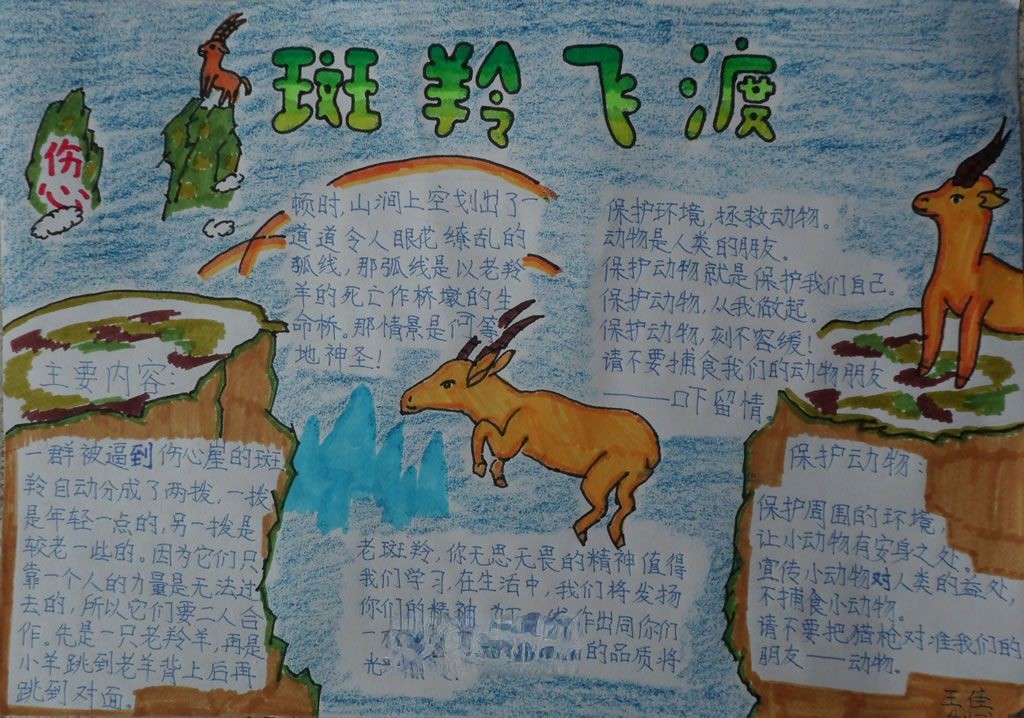 斑羚飞渡
伤心
顿时,山涧上空划出了一
道道令人眼花缭乱的
弧线,那弧线是以老羚
羊的死亡作桥墩的生
命桥。那情景是何等
地神圣!
保护环境,拯救动物。
动物是人类的朋友。
保护动物就是保护我们自己。
保护动物,从我做起。
保护动物,刻不容缓!
请不要捕食我们的动物朋友
——口下留情。
主要内容:
一群被逼到伤心崖的斑
羚自动分成了两拨,一拨
是年轻一点的,另一拨是
较老一些的。因为它们只
靠一个人的力量是无法过
去的,所以它们要二人合
作。先是一只老羚羊,再是
小羊跳到老羊背上后再
跳到对面。
老斑羚,你无思无畏的精神值得
我们学习,在生活中,我们将发扬
你们的精神 作出同你们
一 的品质将
光
保护动物:
保护周围的环境,
让小动物有安身之处。
宣传小动物对人类的益处,
不捕食小动物。
请不要把猎枪对准我们的
朋友——动物。
王佳